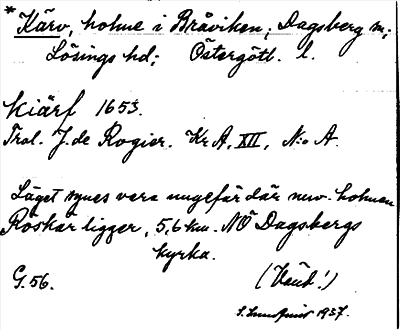 *Kärv, holme i Bråviken; Dagsberg sn;
Lösings hd; Östergötl. l.
Kiärf 1653.
Trol. J. de Rogier. Kr A, XII, N:o A.
Läget synes vara ungefär där nuv. holmen
Röskär ligger, 5,6 km. NÖ Dagsbergs
kyrka.
G. 56. (Vänd!)
S. 1937.